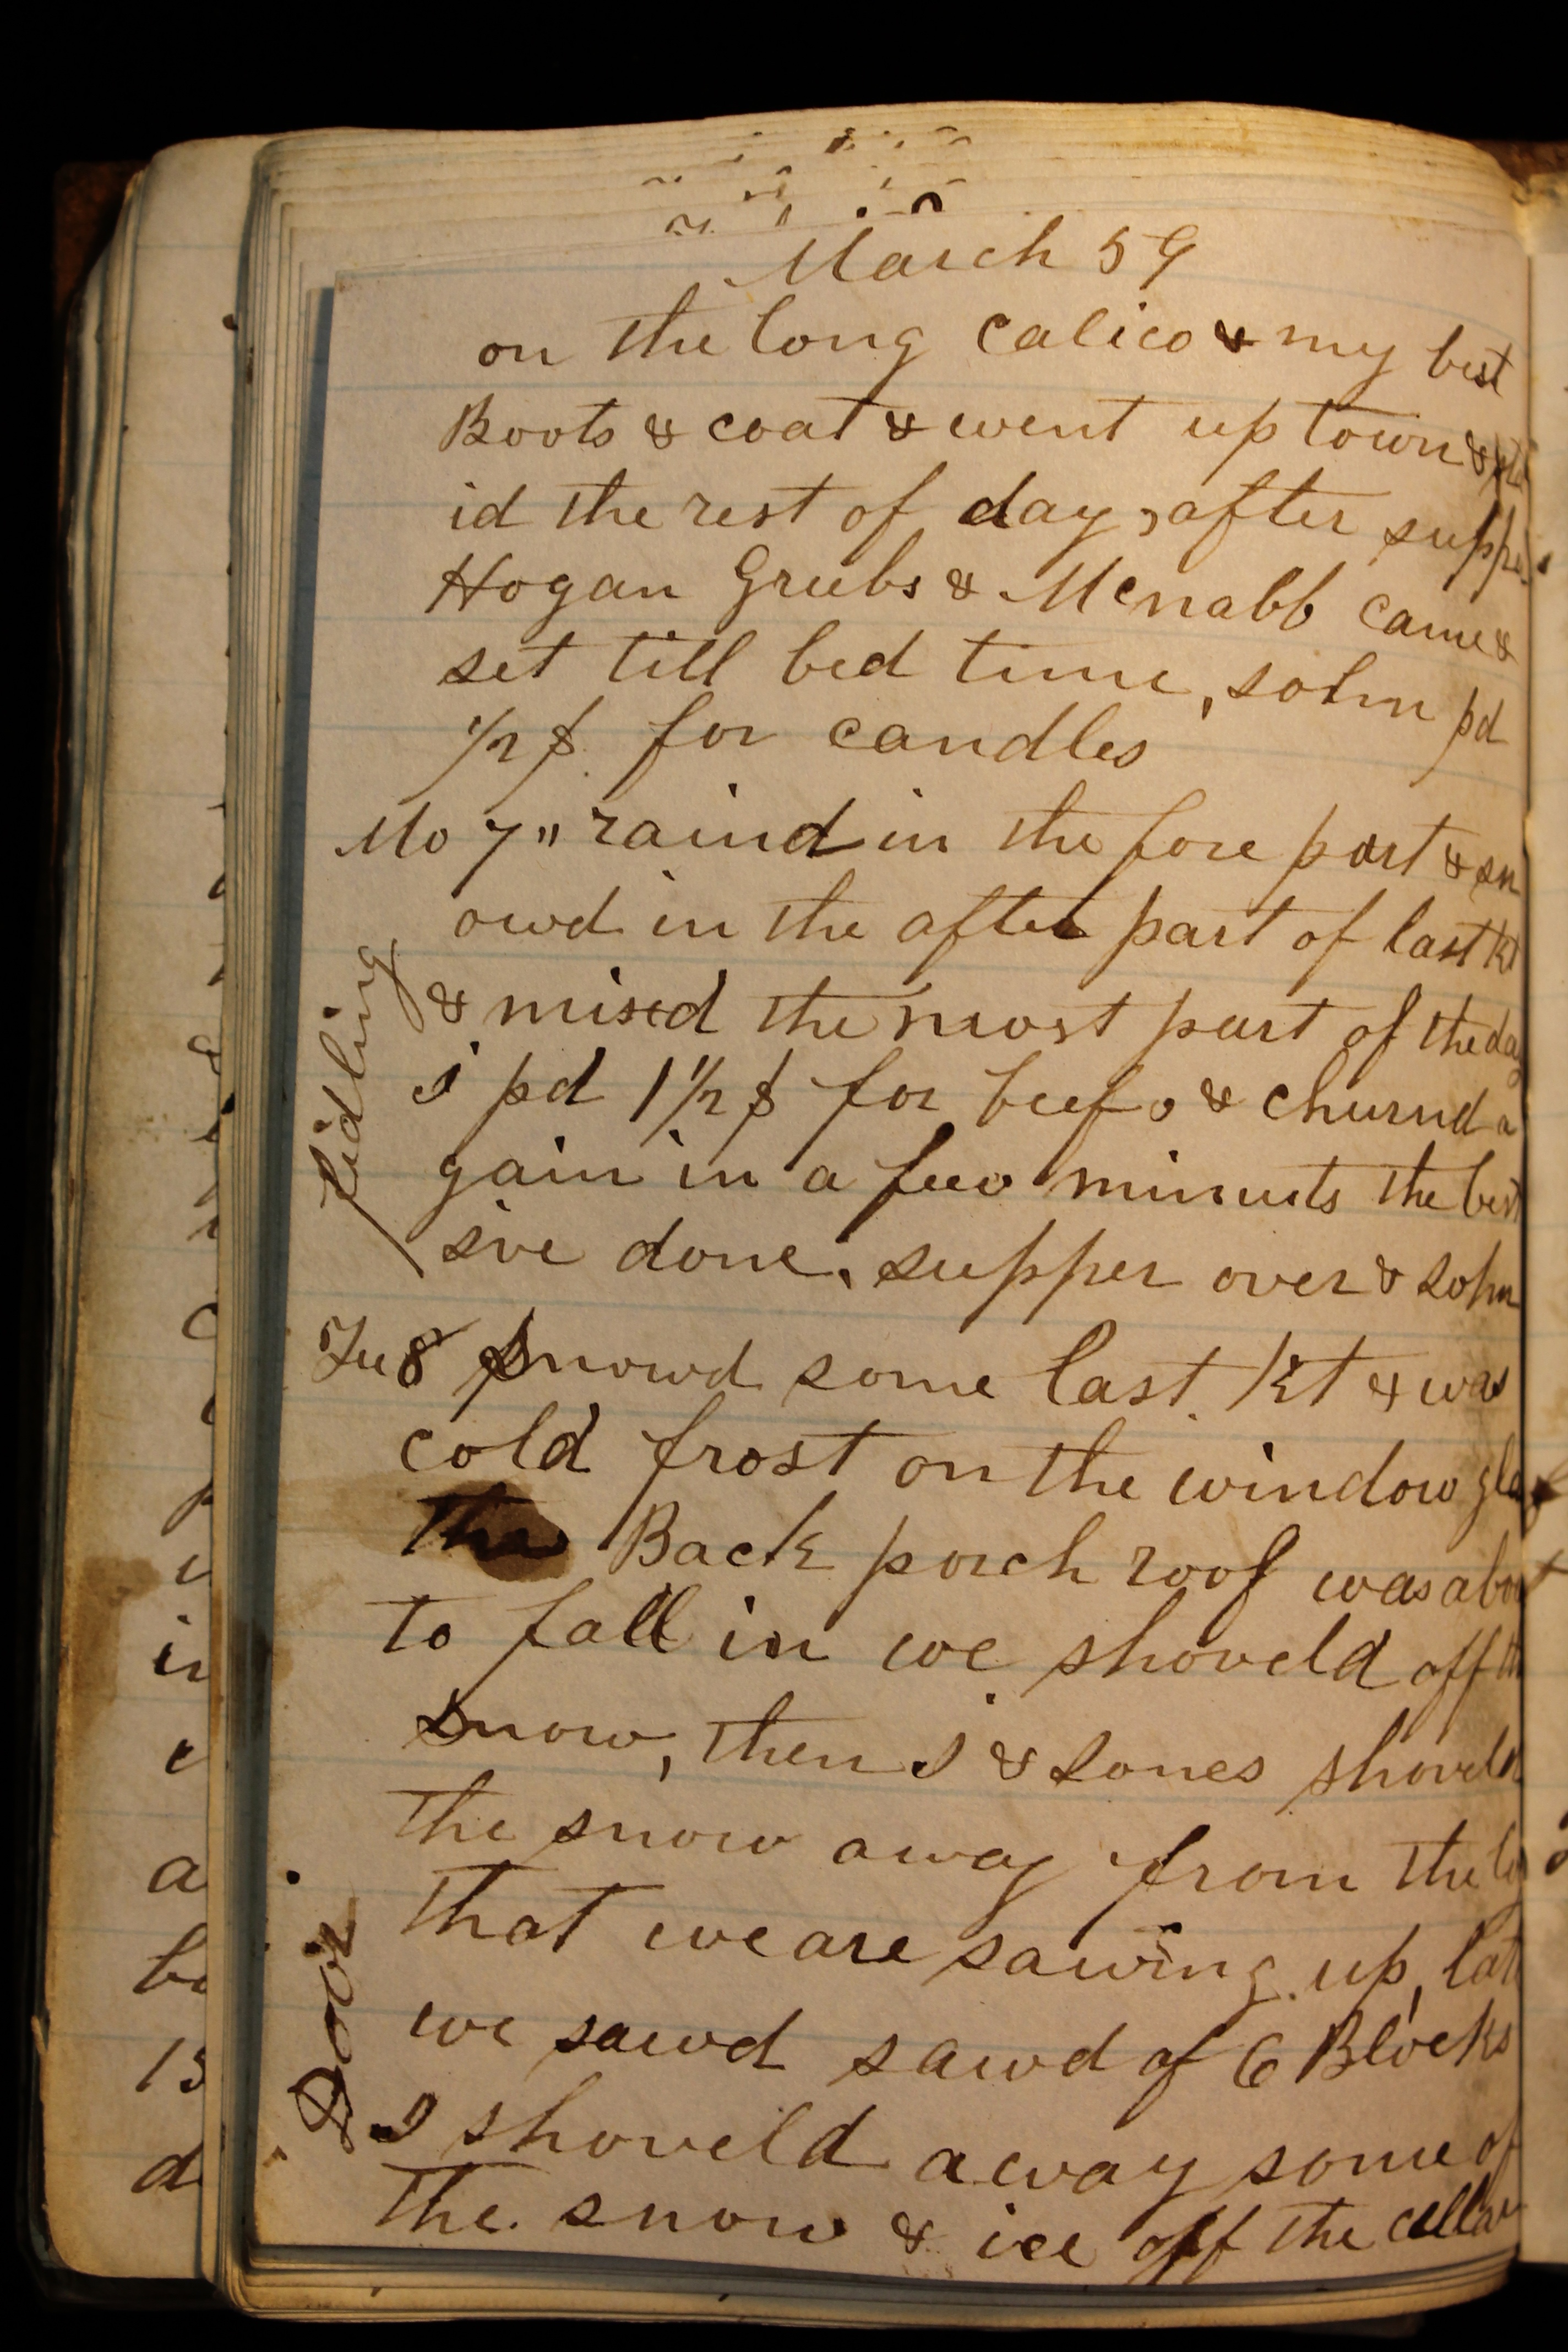 March 59
on the long calico & my best
Boots & coat & went up town &
id the rest of day, after suppe
Hogan Grubs & Mcnabb came &
set till bed time, John pd
1/2 $ for candles
Mo 7" raind in the fore part & sn
owd in the after part of last kt
& mised the most part of the day
I pd 1 1/2 $ for beef, & churnd a
gain in a few minuts the best
Ive done, supper over & John
fidling
Tu 8 Snowd some last kt & was
cold frost on the window gla
the Back porch roof was about
to fall in we shoveld off th
snow, then I & Jones shoveld
the snow away from the
that we are sawing up, late
we sawd sawd of 6 Blocks
I shoveld away some of
the snow & ice off the cellar
Door